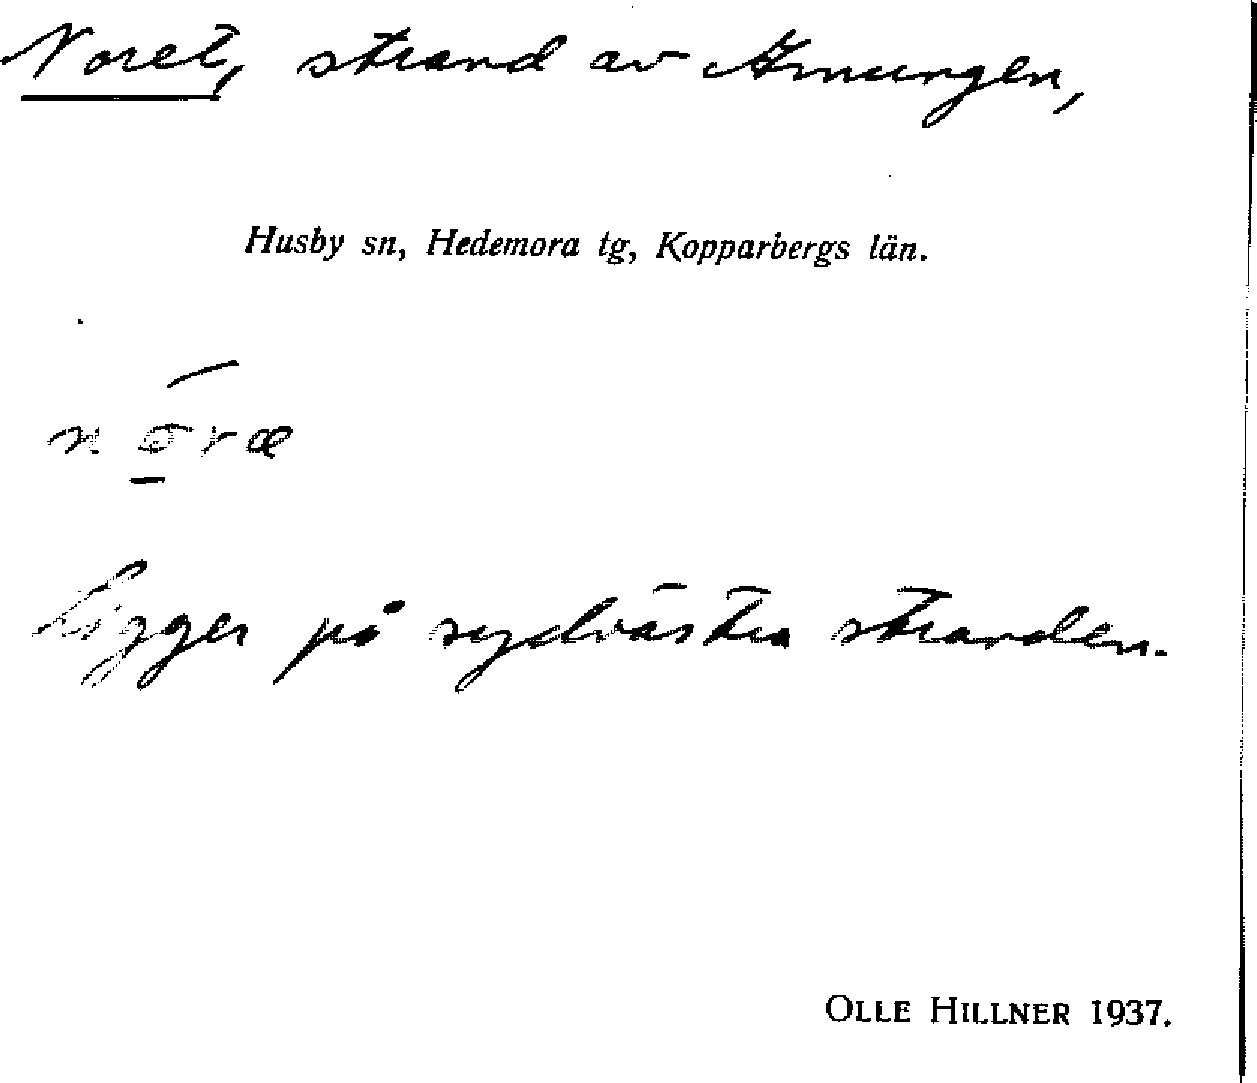 Noret, strand av Amungen,
Husby sn, Hedemora tg, Kopparbergs län.
Ligger på sydvästra stranden.
OLLE HILLNER 1937.